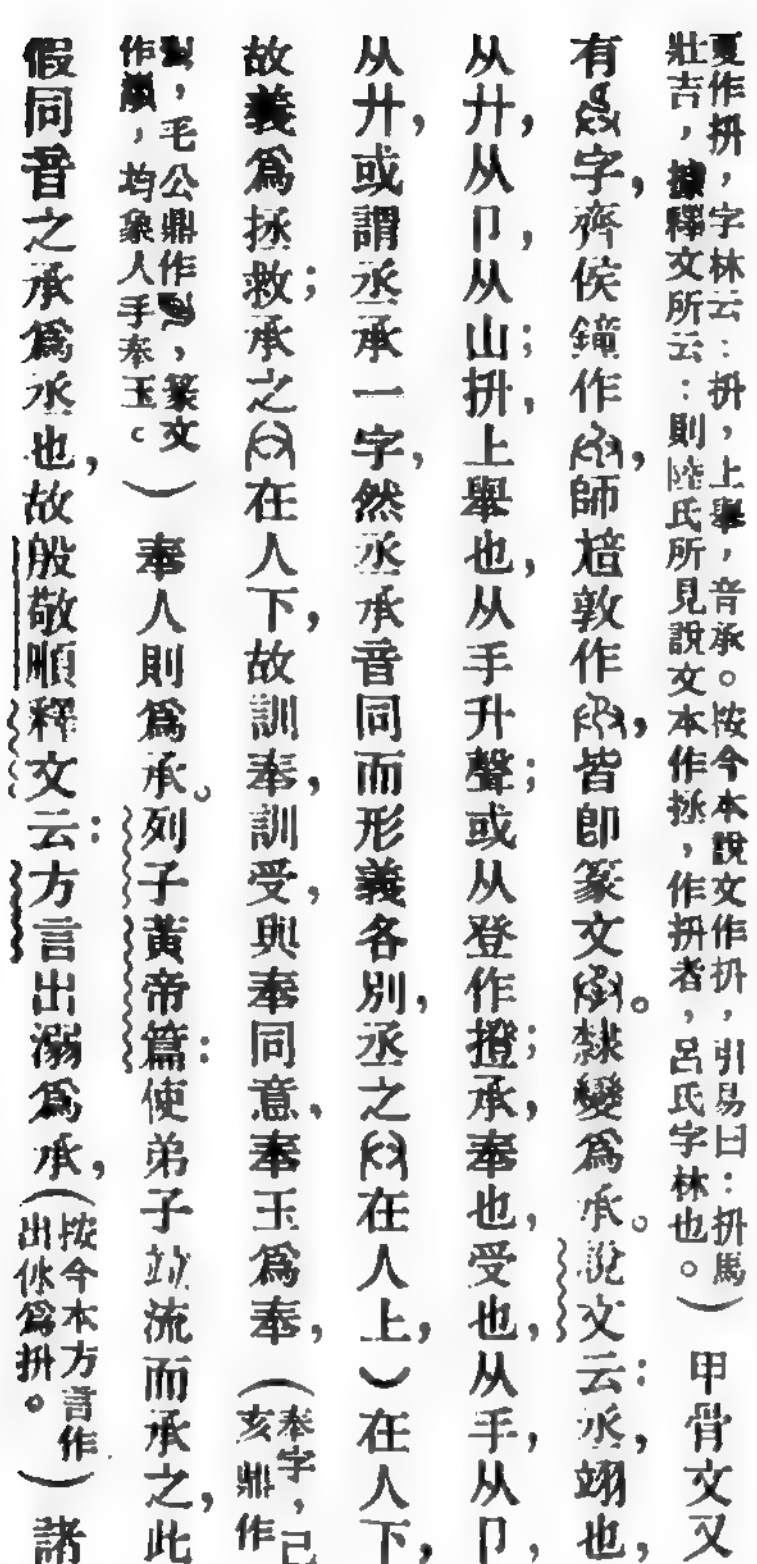 夏作拼，字林云：拼，上舉，音承。按今本說文作抍，引易曰：抍馬
壯吉，據釋文所云：則陸氏所見說文本作拯，作抍者，呂氏字林也。）
甲骨文又
有字，齊侯鐘作，師㝨敦作，皆卽篆文。隸變爲承。說文云：丞，翊也，
从廾，从卩，从山；抍，上舉也，从手升聲；或从登作撜；承，奉也，受也，从手，从卩，
从廾，或謂丞承一字，然丞承音同而形義各別，丞之在人上，）在人下，
故義爲拯救；承之在人下，故訓奉，訓受，與奉同意，奉玉爲奉，（奉字，己
亥鼎作
，毛公鼎作，篆文
作，均象人手奉玉。）
奉人則爲承。列子黃帝篇：使弟子竝流而承之，此
假同音之承爲丞也，故殷敬順釋文云：方言出溺爲承，（按今本方言作
出休爲抍。）
諸